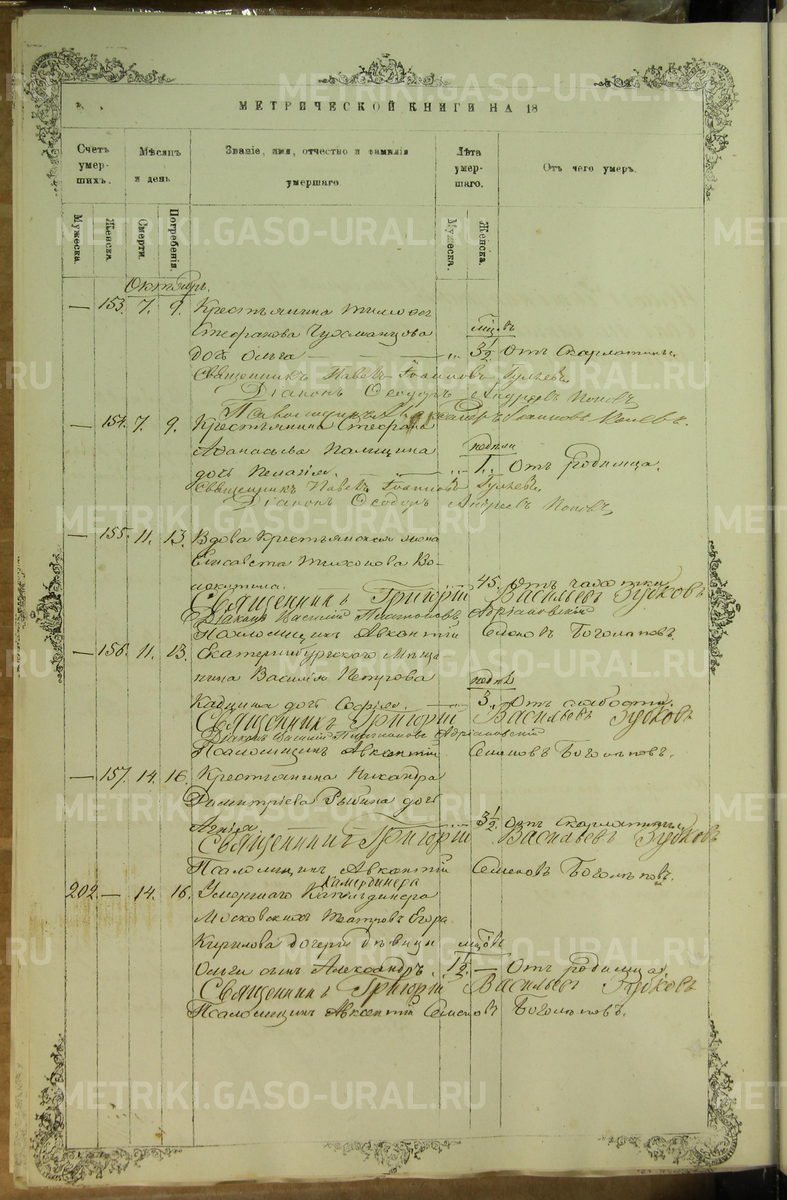 METRIKI.GASO-URAL.RU
МЕТРИЧЕСКОЙ КНИГИ НА 18
Счетъ умершихъ.
Мѣсяцъ и день
Званіе, имя, отчество и фамилія умершаго
Лѣта умершаго.
Отъ чего умеръ.
Мужеска.
Женска.
Смерти.
Погребенія.
Мужеска.
Женска.
Октябрь.
— 153. 7. 9. Крестьянина
Стефанова
дочь Ольга — „ 3½ Отъ скарлатины.
Священникъ Павелъ Іоанновъ
Діаконъ Ѳеодоръ Андреевъ Поповъ
— 154. 7. 9. Крестьянина Стефана
Аѳанасьева
недѣли
дочь Пелагія. — „ 1. Отъ родимца.
Священникъ Павелъ Іоанновъ
Діаконъ Ѳеодоръ Андреевъ Поповъ
— 155. 11. 13. Вдова Крестьянская жена
Елисавета Тихонова
45. Отъ чахотки
Священникъ Григорій Васильевъ Зубковъ
Діаконъ Василій Платоновъ Адріановскій
Псаломщикъ Авксентій Семеновъ Боголѣповъ.
— 156. 11. 13. Екатеринбургскаго Мѣща-
нина Василія Петрова
дочь Софія. — 3. Отъ слабости.
Священникъ Григорій Васильевъ Зубковъ
Діаконъ Василій Платоновъ Адріановскій
Псаломщикъ Авксентій Семеновъ Боголѣповъ.
— 157. 14. 16. Крестьянина Никандра
Димитріева Рыбина дочь
3½ отъ скарлатины
Священникъ Григорій Васильевъ Зубковъ
Псаломщикъ Авксентій Семеновъ Боголѣповъ.
Камердинера
202 — 14. 16. Умершаго
Московскихъ Театровъ Егора
Кирилова дочери дѣвицы мѣсяцовъ
Ольги сынъ Александръ. 1½. — Отъ родимца.
Священникъ Григорій Васильевъ Зубковъ
Псаломщикъ Авксентій Семеновъ Боголѣповъ.